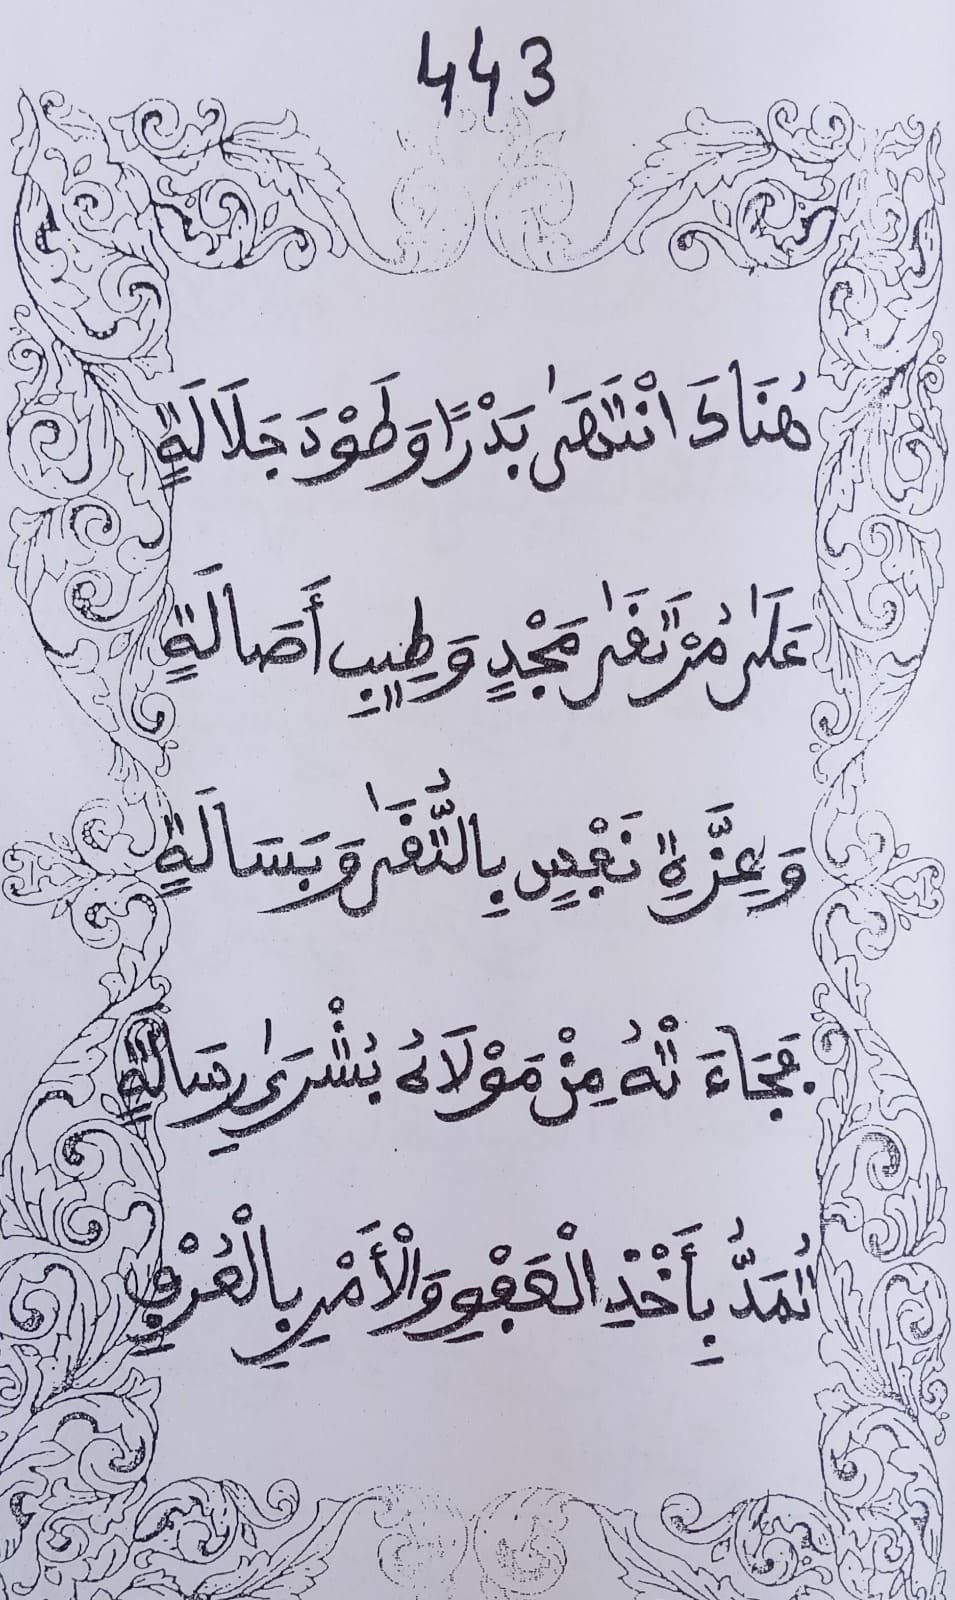 443
هُنَاكَ انْتَهَىٰ بَدْرًا وَطَوْدَ جَلَالَةٍ
عَلَىٰ مُرْتَقَىٰ مَجْدٍ وَطِيبِ أَصَالَةٍ
وَعِزَّةِ نَفْسٍ بِالتُّقَىٰ وَبَسَالَةٍ
فَجَاءَتْهُ مِنْ مَوْلَاهُ بُشْرَىٰ رِسَالَةٍ
تُمَدُّ بِأَخْذِ الْعَفْوِ وَالْأَمْرِ بِالْعُرْفِ